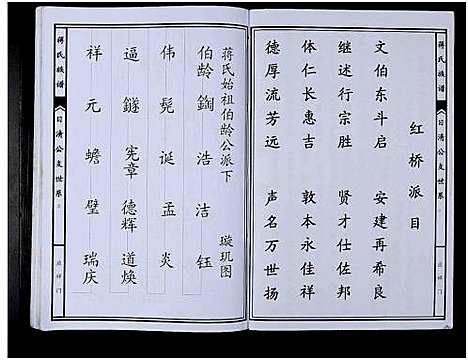 蒋氏族谱
日清公支世系
红桥派目
文伯东斗启 安建再希良
继述行宗胜 贤才仕佐邦
体仁长惠吉 敦本永佳祥
德厚流芳远 声名万世扬
蒋氏始祖伯龄公派下 璇玑图
伯龄 鍧 浩 洁 钰
伟 髡 诞 孟 炎
逼 鐩 宪章 德辉 道焕
祥 元 蟾 璧 瑞庆
蒋氏族谱
日清公支世系